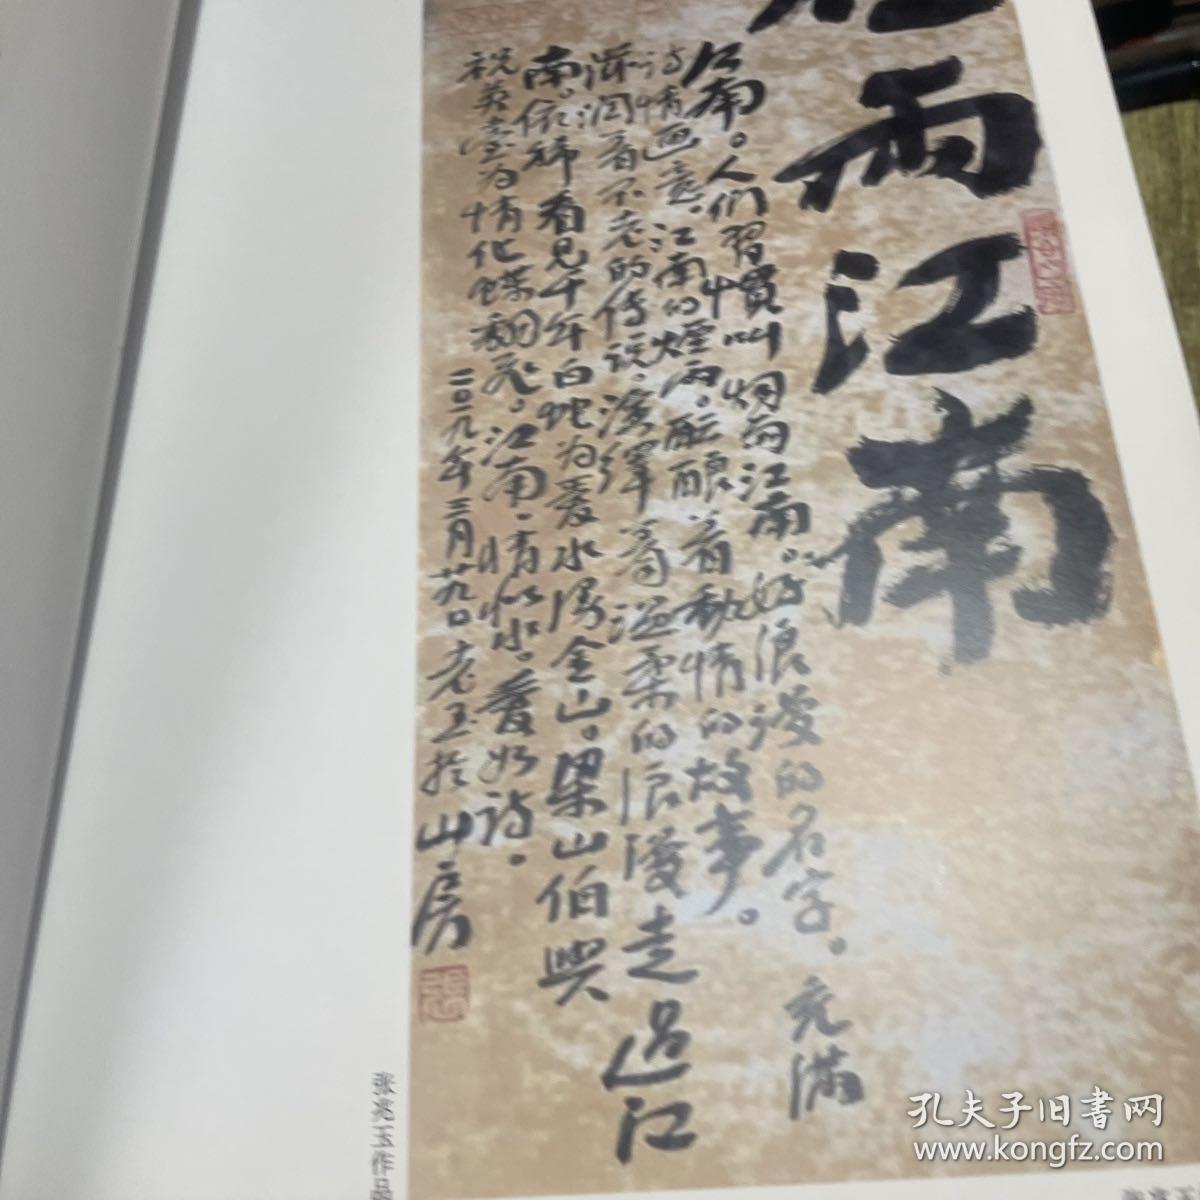 雨江南
江南。人们習慣叫烟雨江南。好浪漫的名字。充满
诗情画意。江南的煙雨。醖酿着動情的故事。
滋润着不老的传说。演绎着温柔的浪漫走過江
南。依稀看見千年白蛇为爱水漫金山。梁山伯與
祝英臺为情化蝶翻飞。江南。情似水。爱如诗。
二〇一九年三月廿九日老玉於山房
張
张兆玉作品
孔夫子旧书网
www.kongfz.com